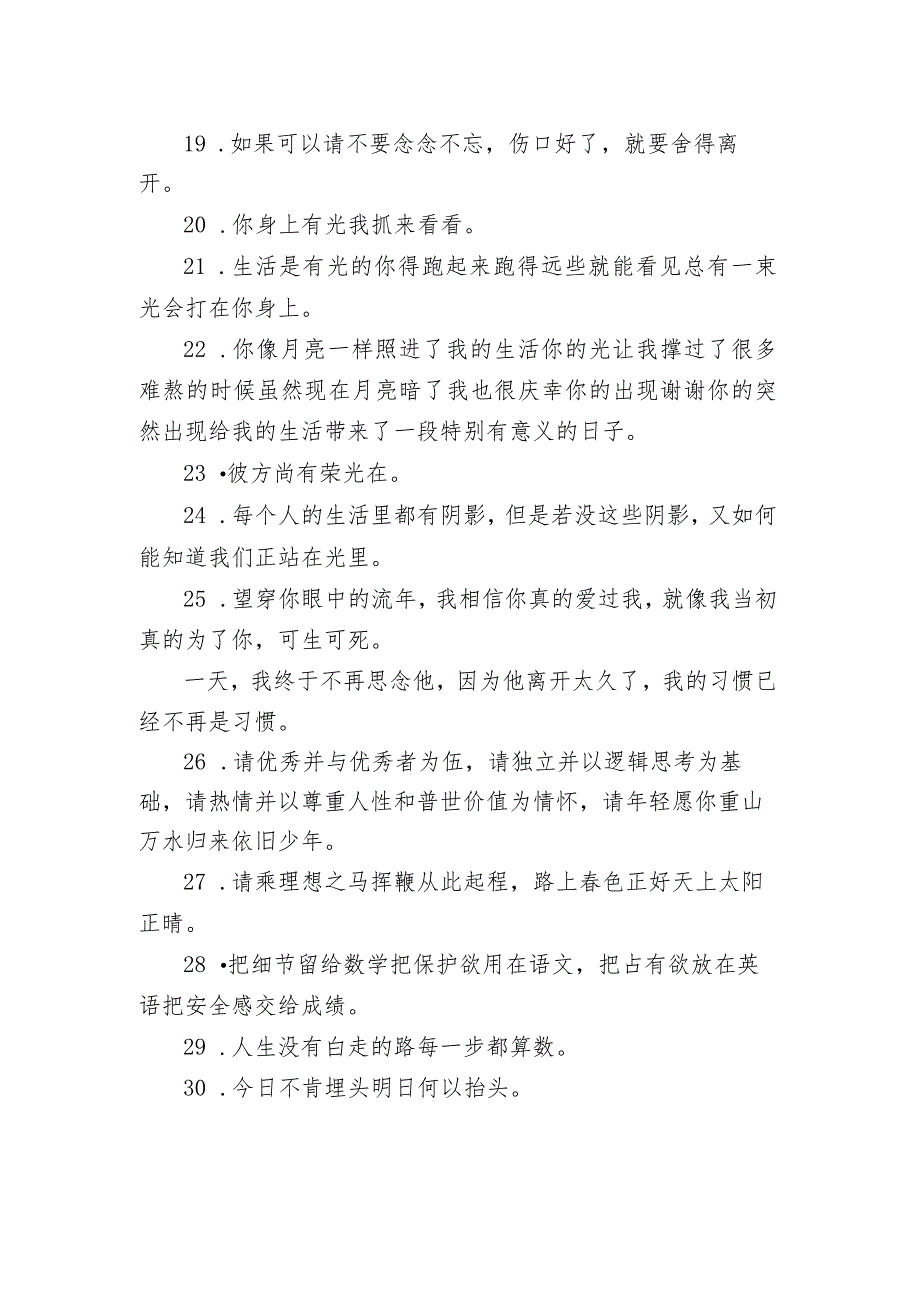 19 .如果可以请不要念念不忘，伤口好了，就要舍得离
开。
20 .你身上有光我抓来看看。
21 .生活是有光的你得跑起来跑得远些就能看见总有一束
光会打在你身上。
22 .你像月亮一样照进了我的生活你的光让我撑过了很多
难熬的时候虽然现在月亮暗了我也很庆幸你的出现谢谢你的突
然出现给我的生活带来了一段特别有意义的日子。
23 •彼方尚有荣光在。
24 .每个人的生活里都有阴影，但是若没这些阴影，又如何
能知道我们正站在光里。
25 .望穿你眼中的流年，我相信你真的爱过我，就像我当初
真的为了你，可生可死。
一天，我终于不再思念他，因为他离开太久了，我的习惯已
经不再是习惯。
26 .请优秀并与优秀者为伍，请独立并以逻辑思考为基
础，请热情并以尊重人性和普世价值为情怀，请年轻愿你重山
万水归来依旧少年。
27 .请乘理想之马挥鞭从此起程，路上春色正好天上太阳
正晴。
28 •把细节留给数学把保护欲用在语文，把占有欲放在英
语把安全感交给成绩。
29 .人生没有白走的路每一步都算数。
30 .今日不肯埋头明日何以抬头。